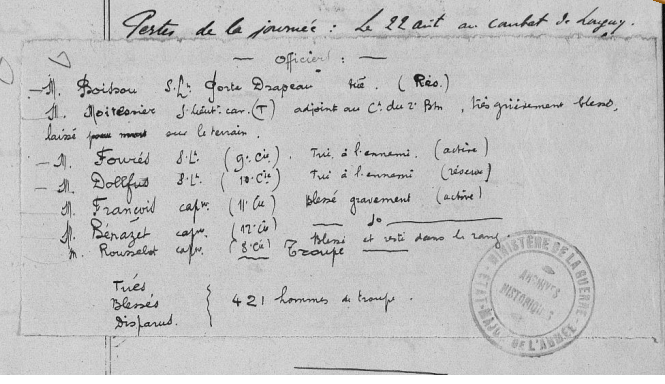 Pertes de la journée : Le 22 août au combat de
— Officiers : —
— M. Boissou S. Lt Porte Drapeau tué. (Rés.)
M. S. lieut. car. (T) adjoint au Ct du 2e Btn, très grièvement blessé,
laissé pour mort sur le terrain.
— M. Fourés S. Lt (9e Cie) Tué, à l'ennemi. (active)
— M. Dollfus S. Lt (10e Cie) Tué à l'ennemi (réserve)
— M. François capne (11e Cie) Blessé gravement (active)
M. Bérazet capne (12e Cie) — do —
M. Rousselot capne (8e Cie) Blessé et resté dans le rang.
— Troupe —
Tués
Blessés } 421 hommes de troupe.
Disparus.
MINISTÈRE DE LA GUERRE
ÉTAT-MAJOR DE L'ARMÉE
ARCHIVES
HISTORIQUES